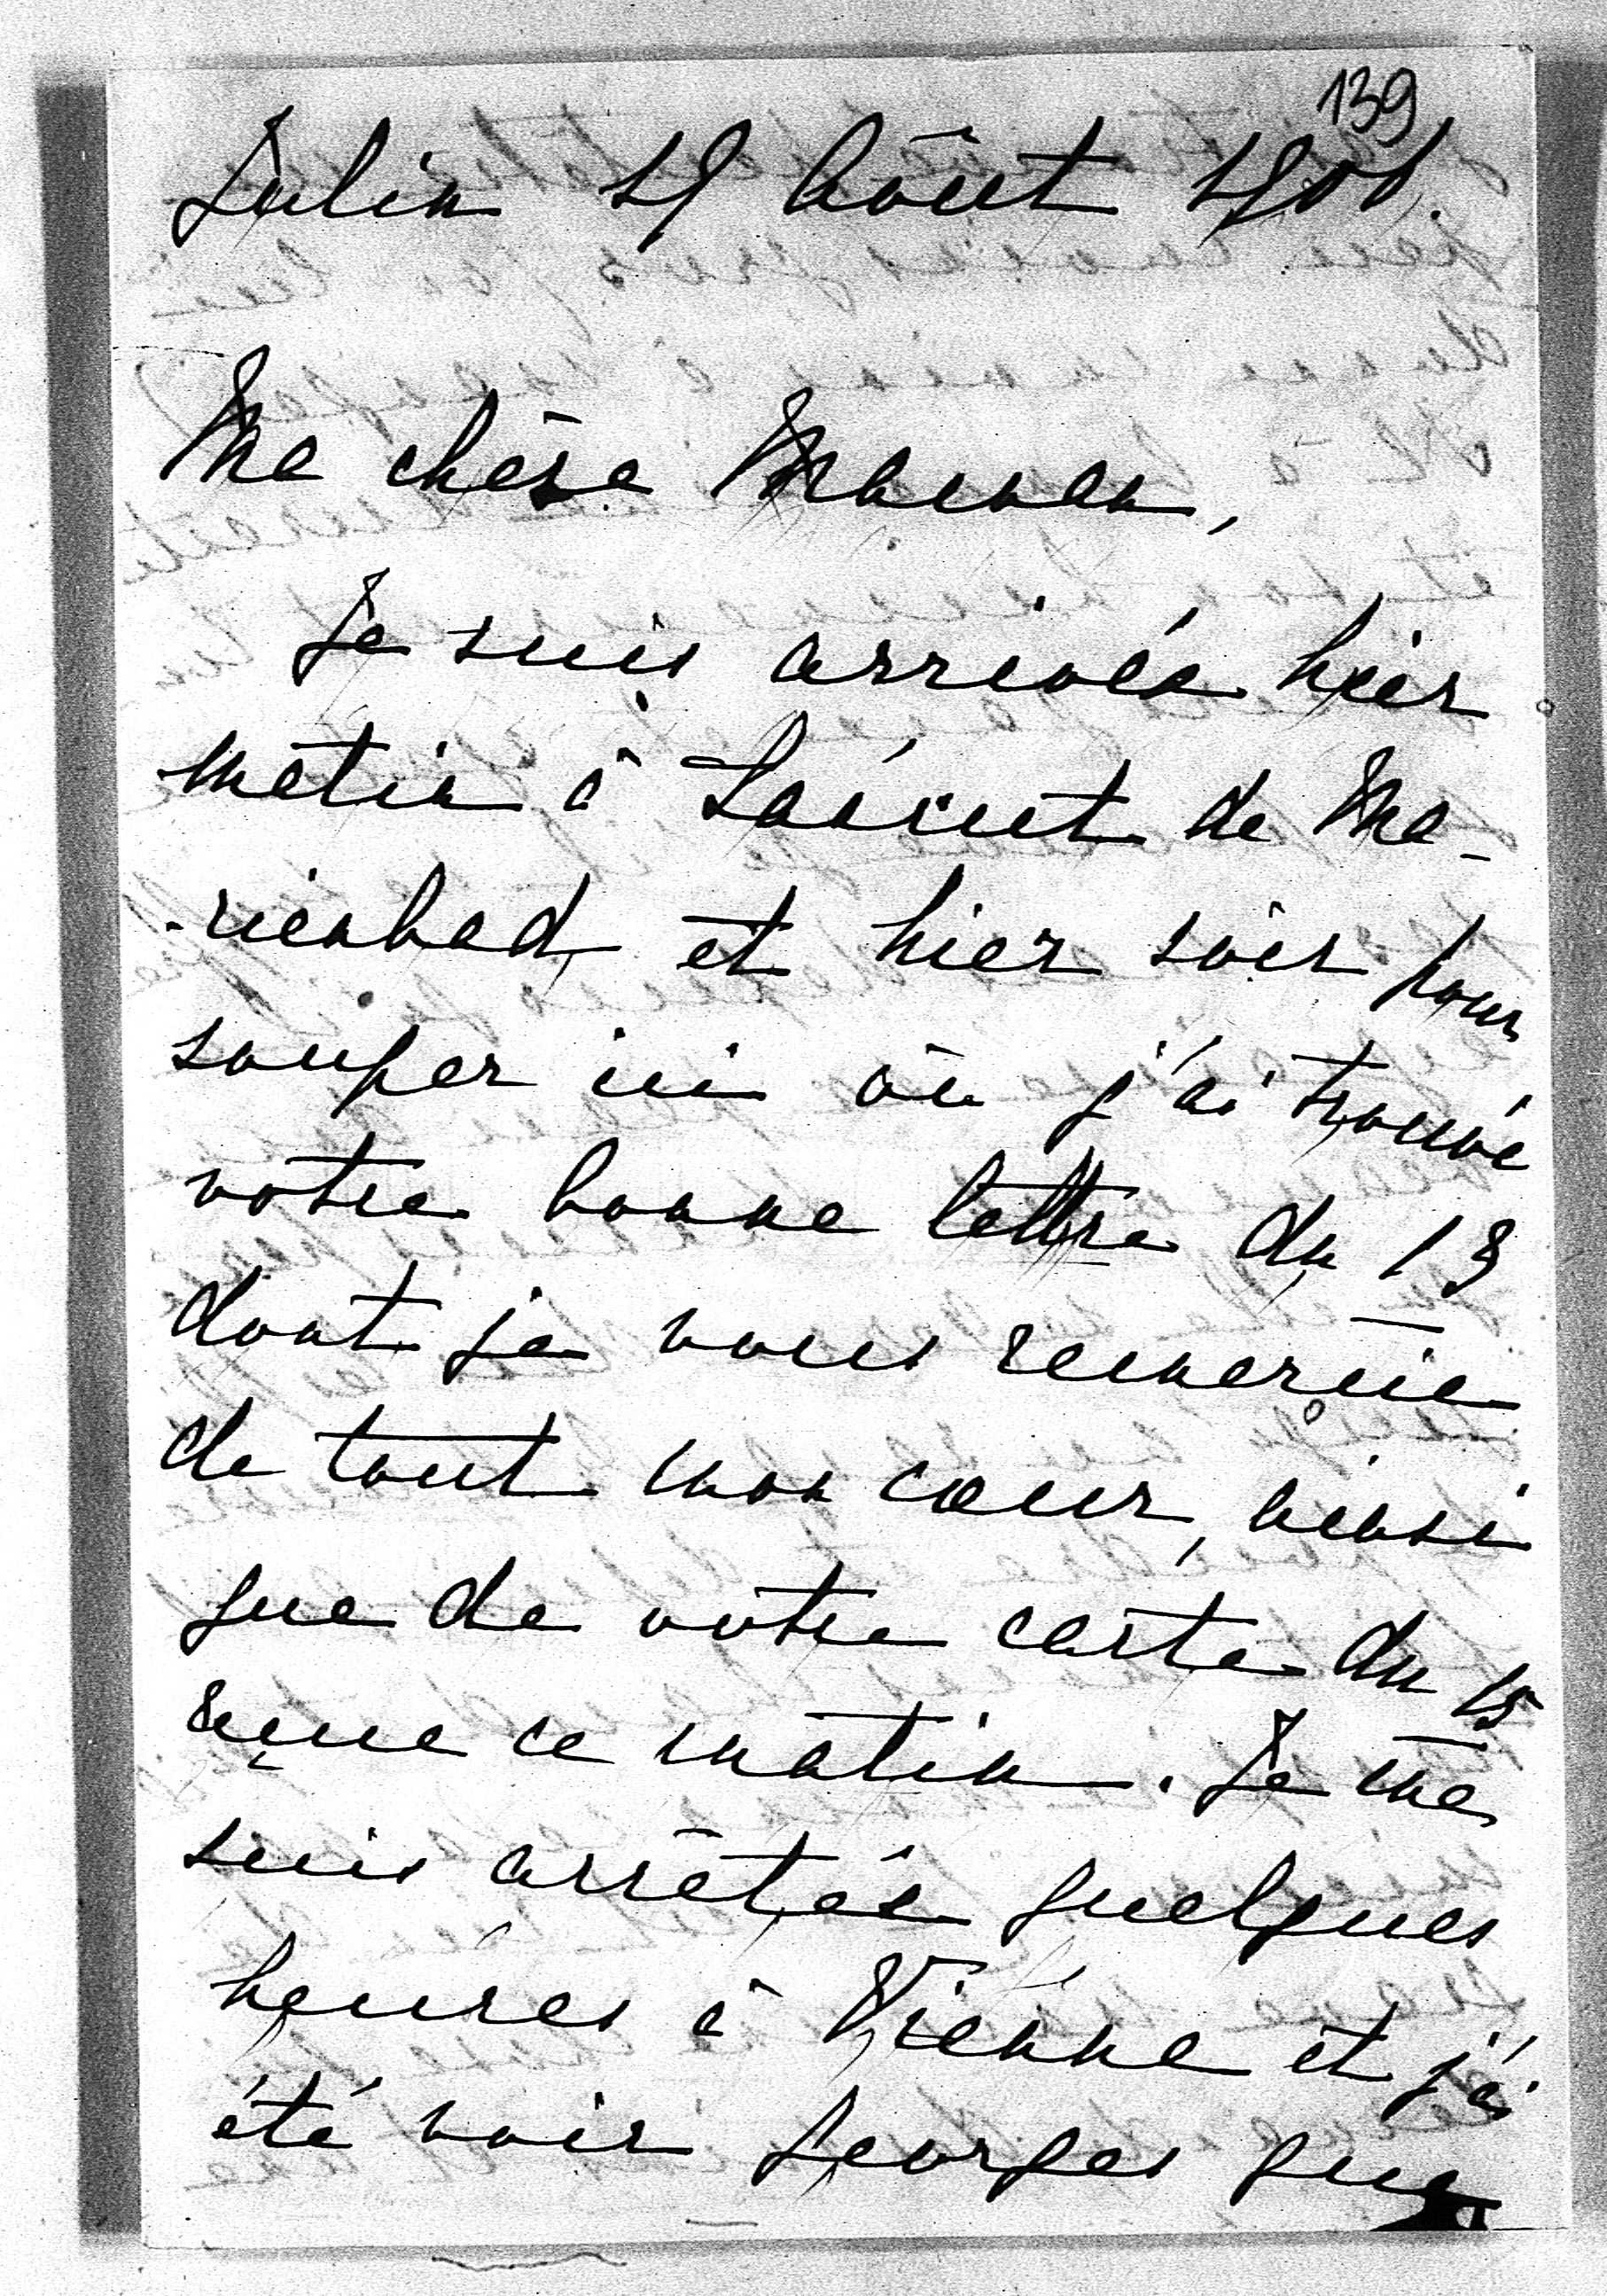 139
Lulin 19 Août 1901.
Ma chère Maman,
Je suis arrivée hier
matin à Łańcut de Ma-
rienbad, et hier soir pour
souper ici où j'ai trouvé
votre bonne lettre du 13
dont je vous remercie
de tout mon cœur, ainsi
que de votre carte du 15
reçue ce matin. Je me
suis arrêtée quelques
heures à Vienne et j'ai
été voir Georges que